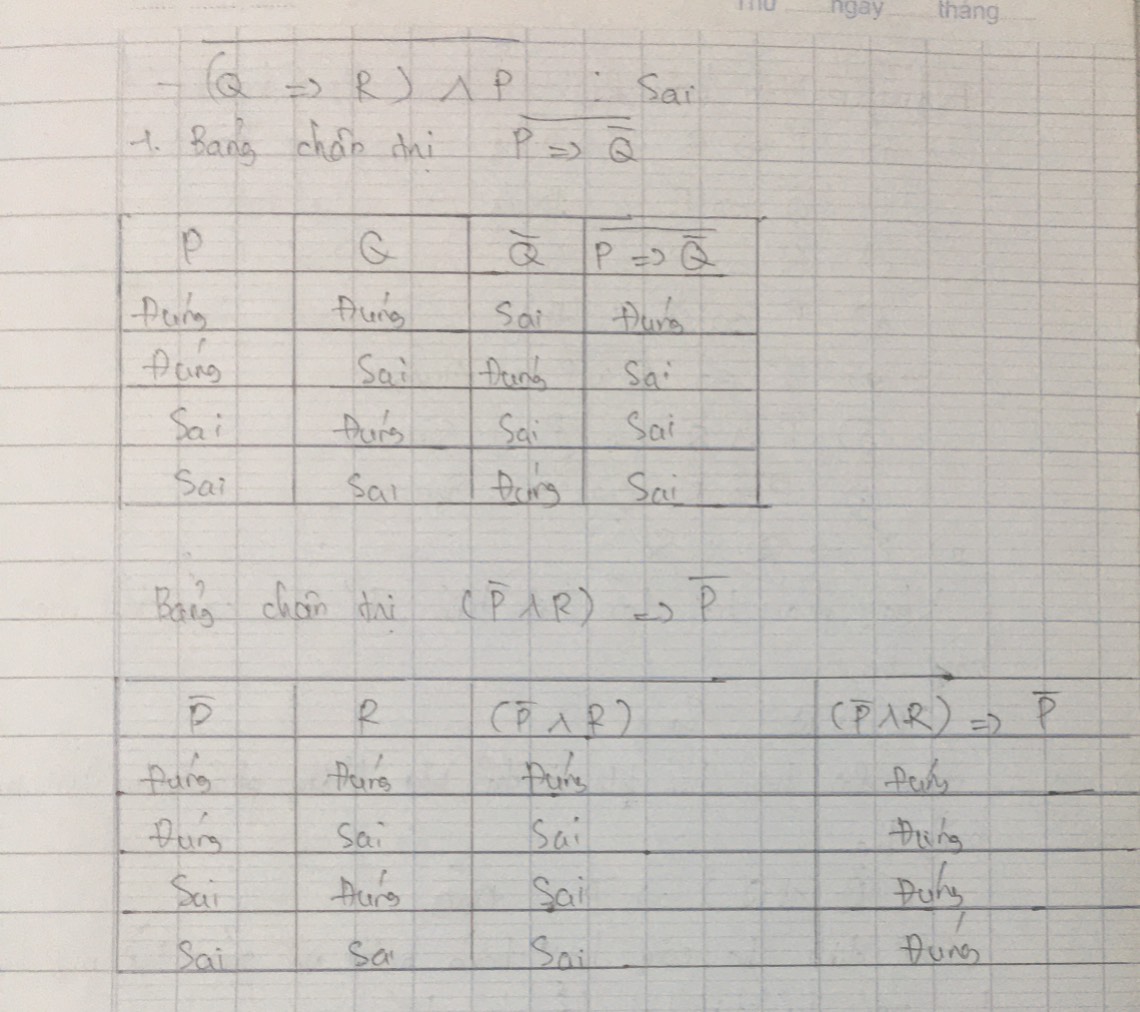 Thứ ngày tháng
- \overline{(Q => R) ∧ P} : Sai
+. Bảng chân trị \overline{P => Q̅}
P Q Q̅ \overline{P => Q̅}
Đúng Đúng Sai Đúng
Đúng Sai Đúng Sai
Sai Đúng Sai Sai
Sai Sai Đúng Sai
Bảng chân trị (P̅ ∧ R) => P̅
P̅ R (P̅ ∧ R) (P̅ ∧ R) => P̅
Đúng Đúng Đúng Đúng
Đúng Sai Sai Đúng
Sai Đúng Sai Đúng
Sai Sai Sai Đúng